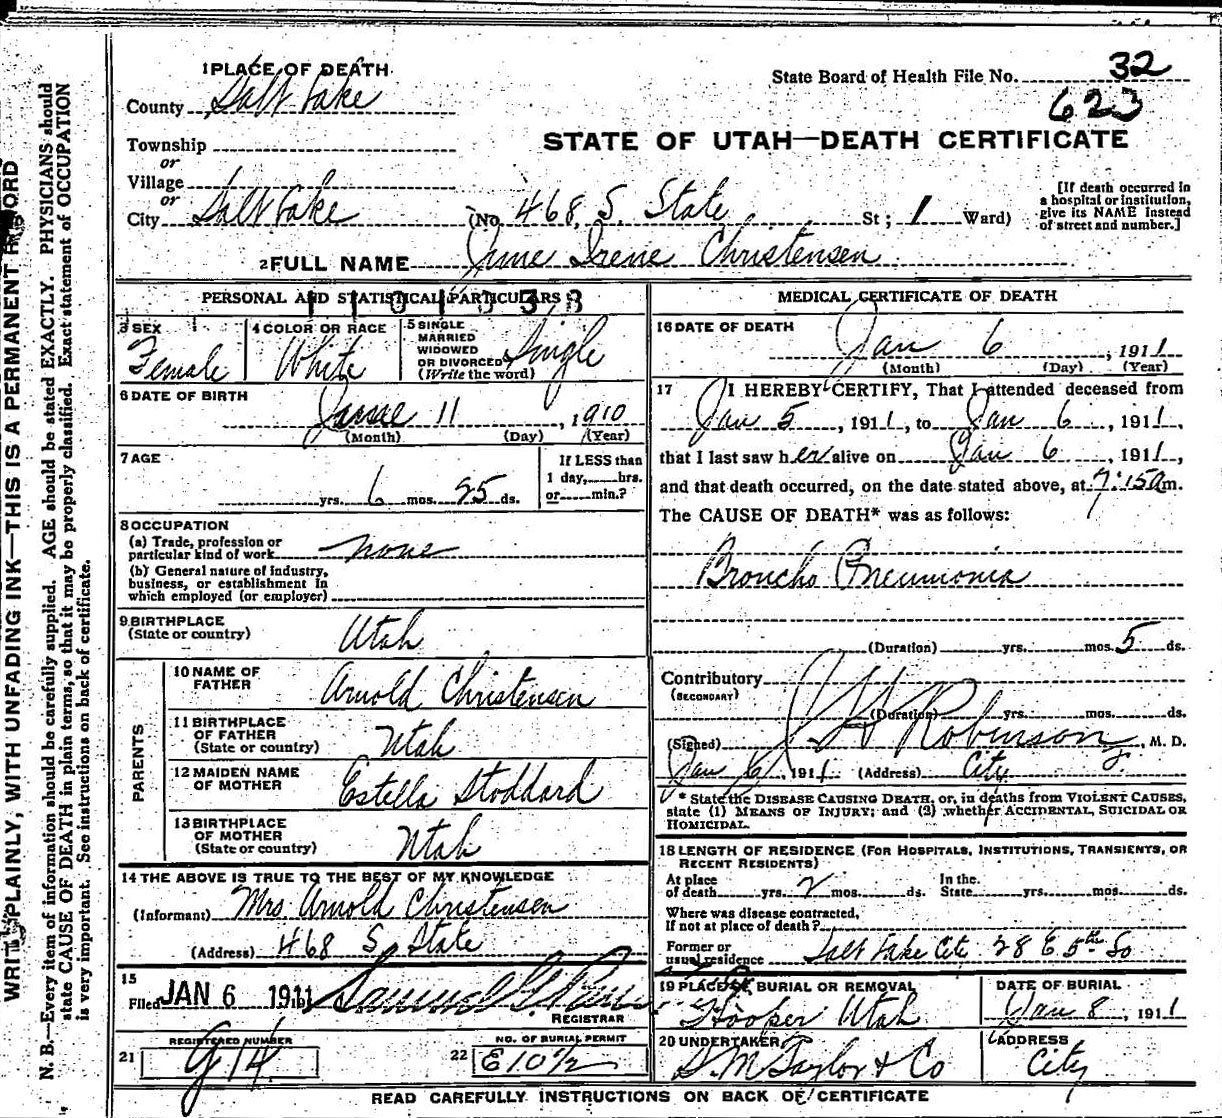 1 PLACE OF DEATH
State Board of Health File No. 32
County Salt Lake
623
STATE OF UTAH—DEATH CERTIFICATE
Township
or
Village
or
City Salt Lake (No. 468 S. State St; 1 Ward)
[If death occurred in a hospital or institution, give its NAME instead of street and number.]
2 FULL NAME June Irene Christensen
PERSONAL AND STATISTICAL PARTICULARS
3 SEX
Female
4 COLOR OR RACE
White
5 SINGLE
MARRIED
WIDOWED
OR DIVORCED
(Write the word)
Single
6 DATE OF BIRTH
June 11, 1910
(Month) (Day) (Year)
7 AGE
yrs. 6 mos. 25 ds.
If LESS than
1 day, hrs.
or min.?
8 OCCUPATION
(a) Trade, profession or
particular kind of work none
(b) General nature of industry,
business, or establishment in
which employed (or employer)
9 BIRTHPLACE
(State or country)
Utah
PARENTS
10 NAME OF
FATHER
Arnold Christensen
11 BIRTHPLACE
OF FATHER
(State or country)
Utah
12 MAIDEN NAME
OF MOTHER
Estella Stoddard
13 BIRTHPLACE
OF MOTHER
(State or country)
Utah
14 THE ABOVE IS TRUE TO THE BEST OF MY KNOWLEDGE
(Informant) Mrs Arnold Christensen
(Address) 468 S. State
15
Filed JAN 6 1911
REGISTRAR
REGISTERED NUMBER
21
NO. OF BURIAL PERMIT
22 E10½
MEDICAL CERTIFICATE OF DEATH
16 DATE OF DEATH
Jan 6, 1911
(Month) (Day) (Year)
17 I HEREBY CERTIFY, That I attended deceased from
Jan 5, 1911, to Jan 6, 1911,
that I last saw her alive on Jan 6 1911,
and that death occurred, on the date stated above, at 7:15a m.
The CAUSE OF DEATH* was as follows:
Broncho Pneumonia
(Duration) yrs. mos. 5 ds.
Contributory
(SECONDARY)
(Duration) yrs. mos. ds.
(Signed) Robinson, M. D.
Jan 6, 1911 (Address) City
* State the DISEASE CAUSING DEATH, or, in deaths from VIOLENT CAUSES,
state (1) MEANS OF INJURY; and (2) whether ACCIDENTAL, SUICIDAL OR
HOMICIDAL.
18 LENGTH OF RESIDENCE (FOR HOSPITALS, INSTITUTIONS, TRANSIENTS, OR
RECENT RESIDENTS)
At place
of death yrs. 2 mos. ds.
In the
State yrs. mos. ds.
Where was disease contracted,
If not at place of death?
Former or
usual residence Salt Lake City 28 E 5th So
19 PLACE OF BURIAL OR REMOVAL
Hooper Utah
DATE OF BURIAL
Jan 8, 1911
20 UNDERTAKER
S.M. Taylor & Co
ADDRESS
City
READ CAREFULLY INSTRUCTIONS ON BACK OF CERTIFICATE
WRITE PLAINLY, WITH UNFADING INK—THIS IS A PERMANENT RECORD
N. B.—Every item of information should be carefully supplied. AGE should be stated EXACTLY. PHYSICIANS should
state CAUSE OF DEATH in plain terms, so that it may be properly classified. Exact statement of OCCUPATION
is very important. See instructions on back of certificate.